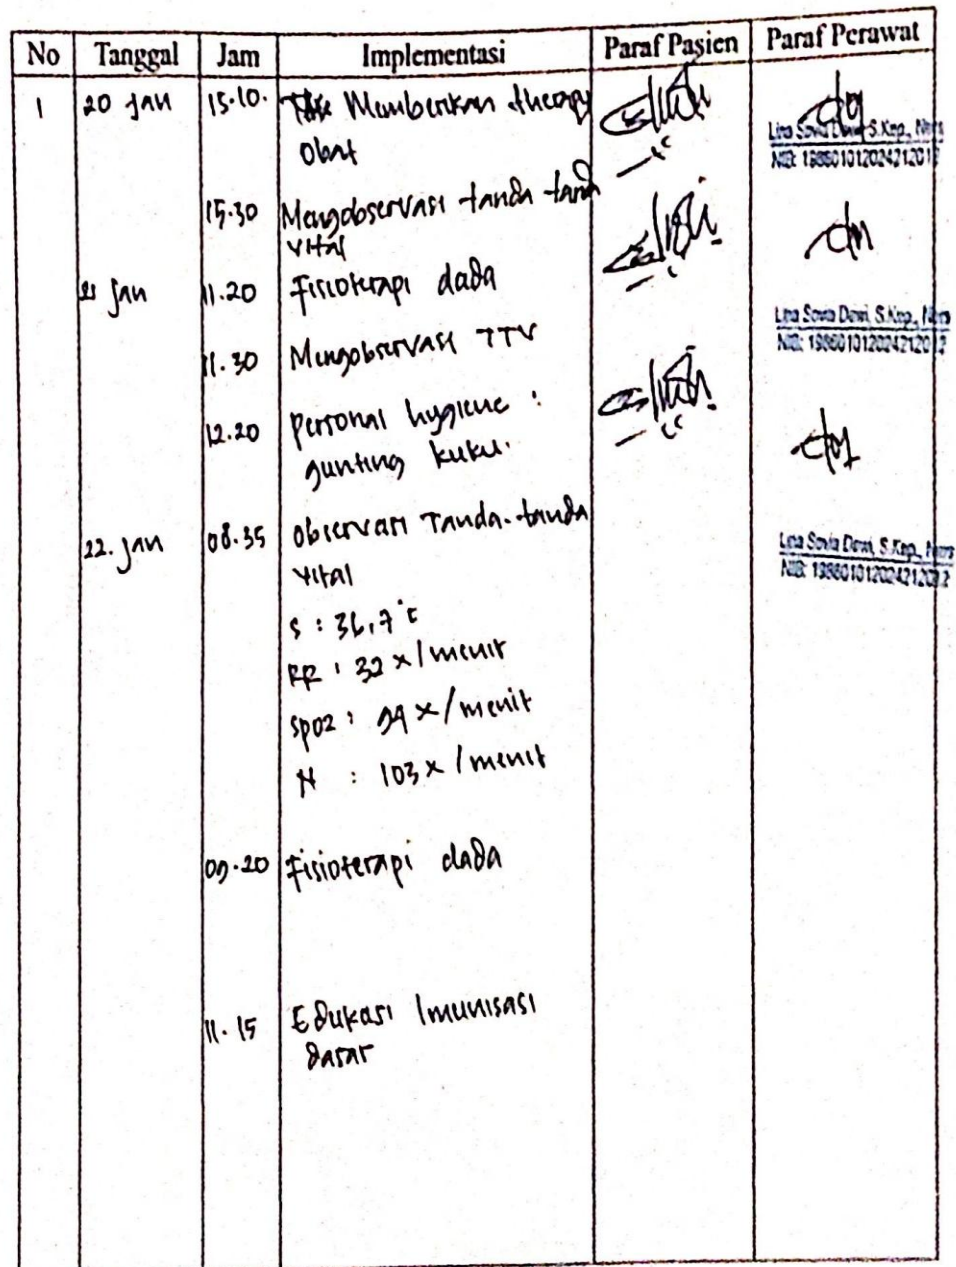 No Tanggal Jam Implementasi Paraf Pasien Paraf Perawat
1 20 Jan 15.10. Memberikan therapy
Obat
Lina Sovia Dewi, S.Kep., Ners
NIB: 198601012024212012
15.30 Mengobservasi tanda tanda
vital
21 Jan 11.20 Fisioterapi dada
Lina Sovia Dewi, S.Kep., Ners
NIB: 198601012024212012
11.30 Mengobservasi TTV
12.20 personal hygiene :
gunting kuku.
22. Jan 08.35 Observasi Tanda-tanda
vital
Lina Sovia Dewi, S.Kep., Ners
NIB: 198601012024212012
S : 36,7 °C
RR : 32 x/menit
SpO2 : 94 x/menit
N : 103 x/menit
09.20 Fisioterapi dada
11.15 Edukasi Imunisasi
dasar